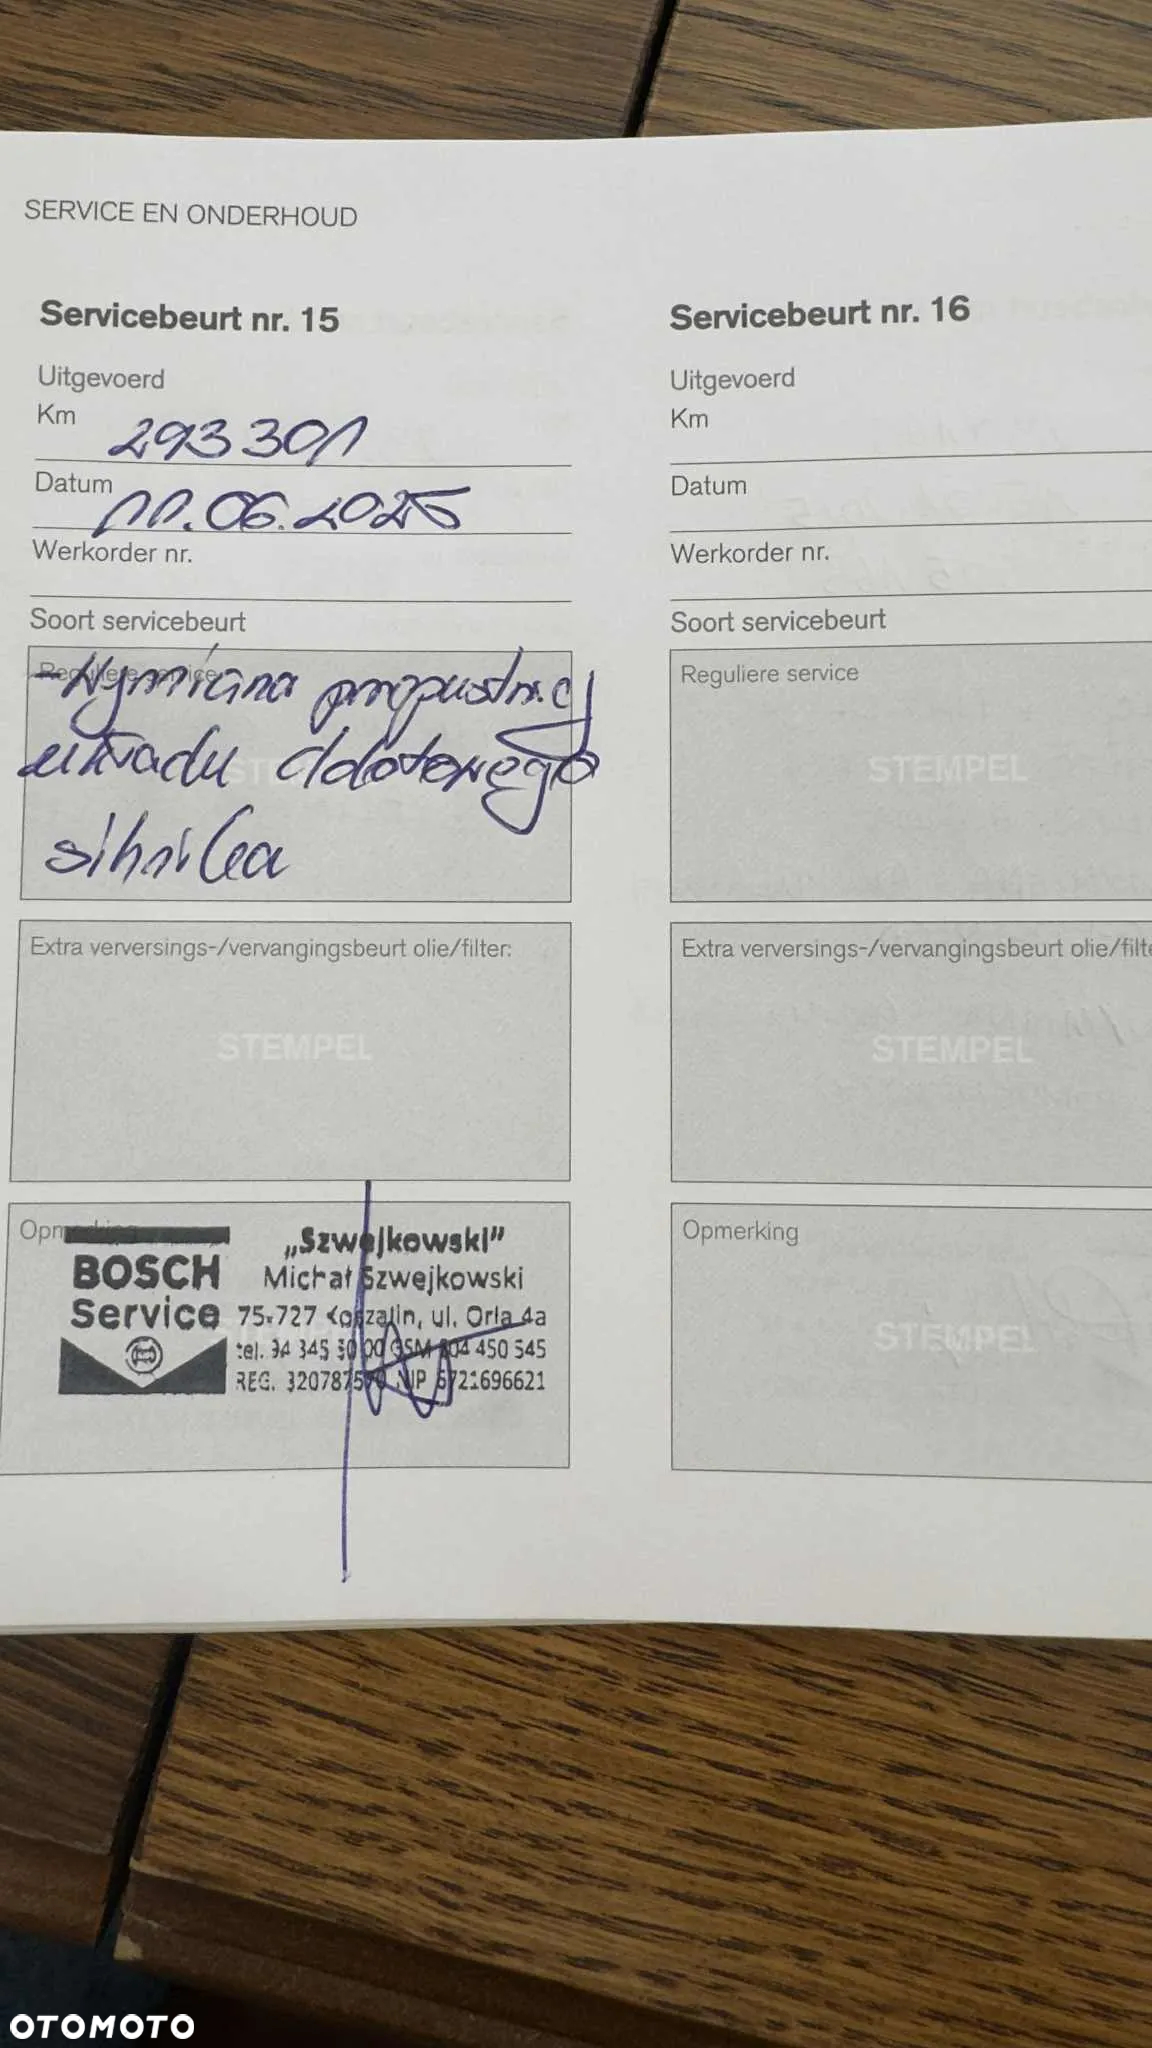 SERVICE EN ONDERHOUD
Servicebeurt nr. 15
Uitgevoerd
Km 293301
Datum 11.06.2025
Werkorder nr.
Soort servicebeurt
Reguliere service
- Wymiana przepustnicy
układu dolotowego
silnika
STEMPEL
Extra verversings-/vervangingsbeurt olie/filter:
STEMPEL
Opmerking
BOSCH
Service
„Szwejkowski”
Michał Szwejkowski
75-727 Koszalin, ul. Orla 4a
tel. 94 345 30 00 GSM 604 450 545
REG. 320787570 NIP 6721696621
Servicebeurt nr. 16
Uitgevoerd
Km
Datum
Werkorder nr.
Soort servicebeurt
Reguliere service
STEMPEL
Extra verversings-/vervangingsbeurt olie/filte
STEMPEL
Opmerking
STEMPEL
OTOMOTO